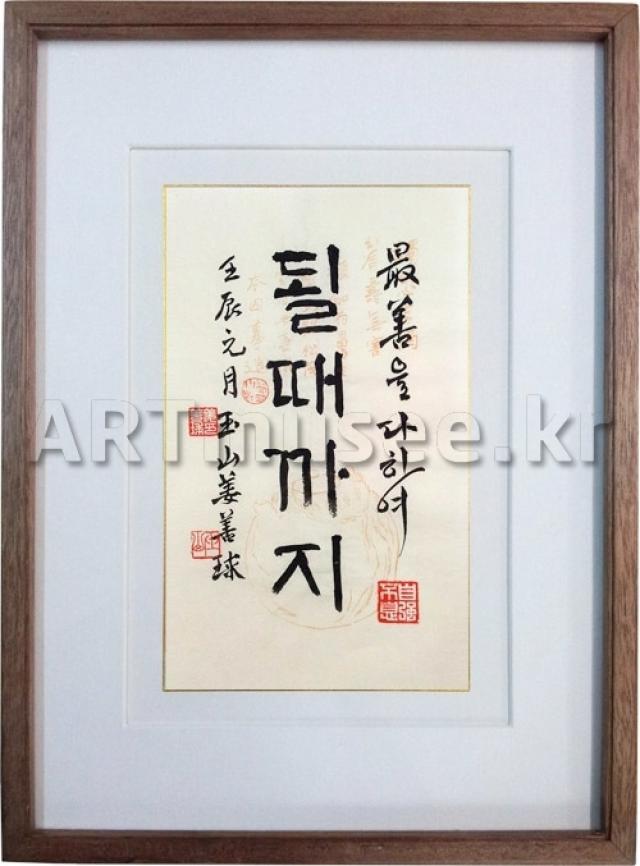 最善을 다하여
될때까지
壬辰元月 玉山 姜善球
自强不息
ARTmusee.kr